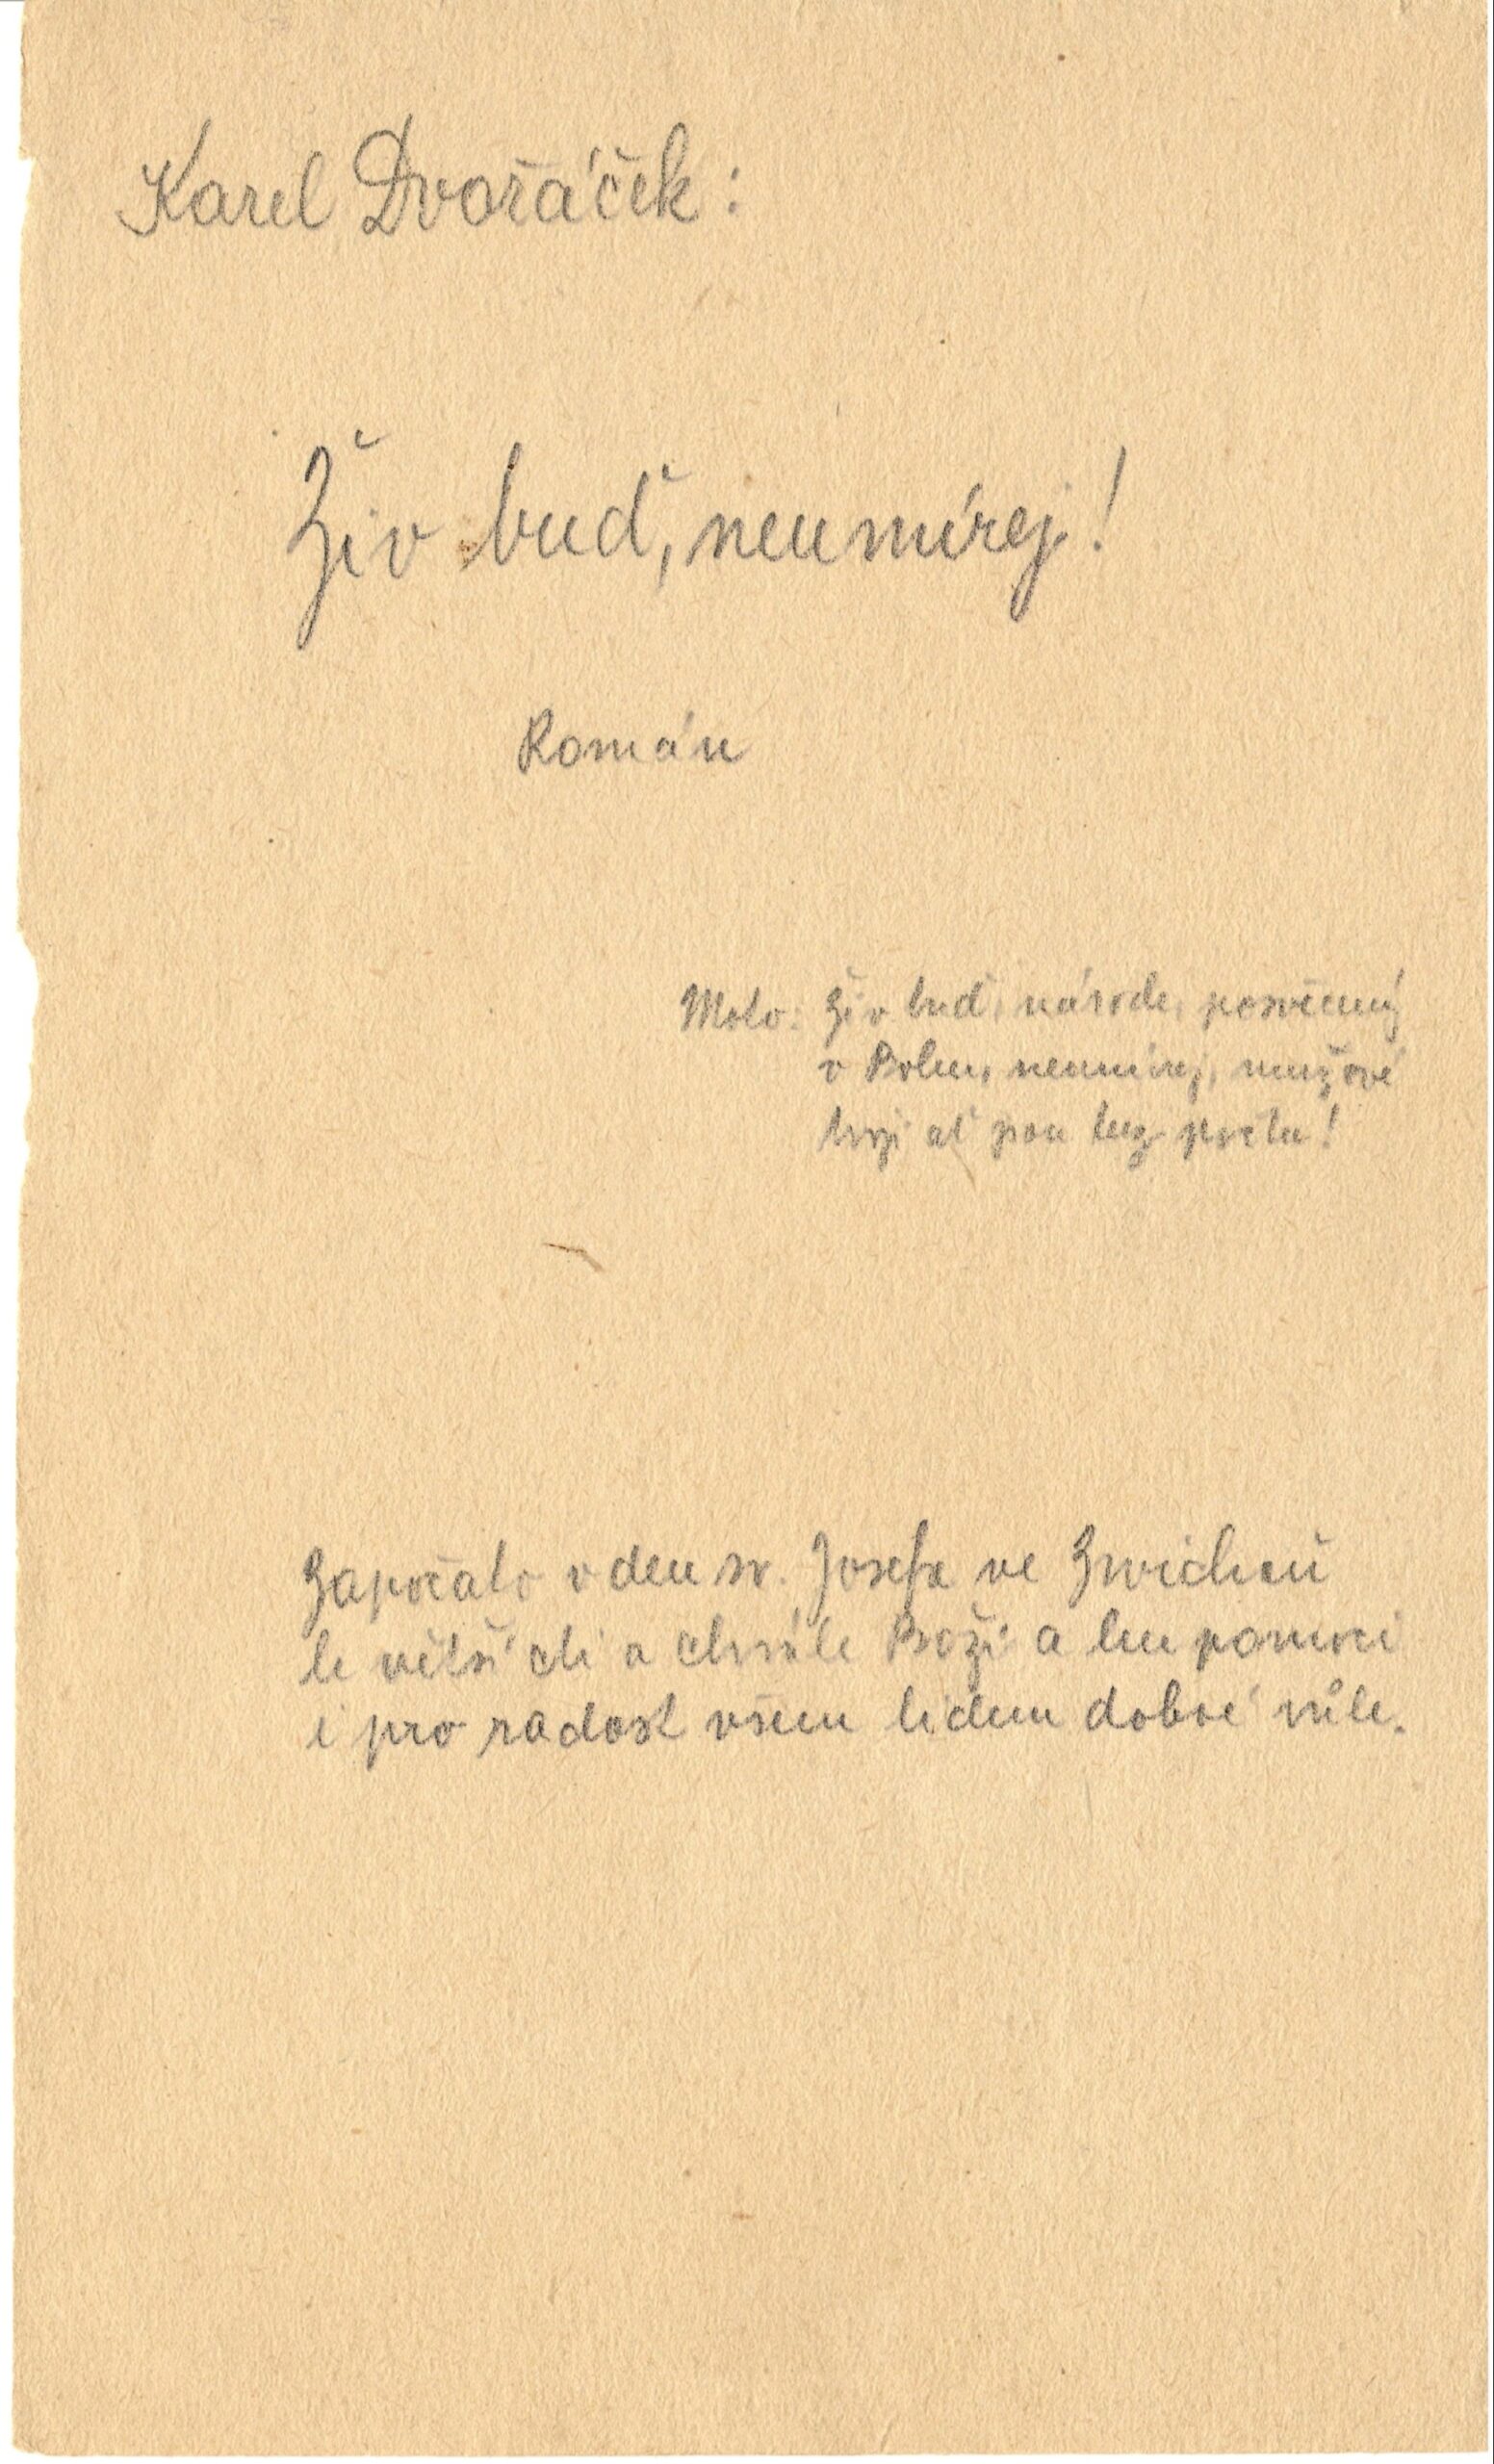 Karel Dvořáček:
Živ buď, neumírej!
Román
Moto: Živ buď, národe, posvěcený
v Bohu, neumírej, mužové
tvoji ať jsou bez počtu!
Započato v den sv. Josefa ve Zwickau
k větší cti a chvále Boží a ku pomoci
i pro radost všem lidem dobré vůle.